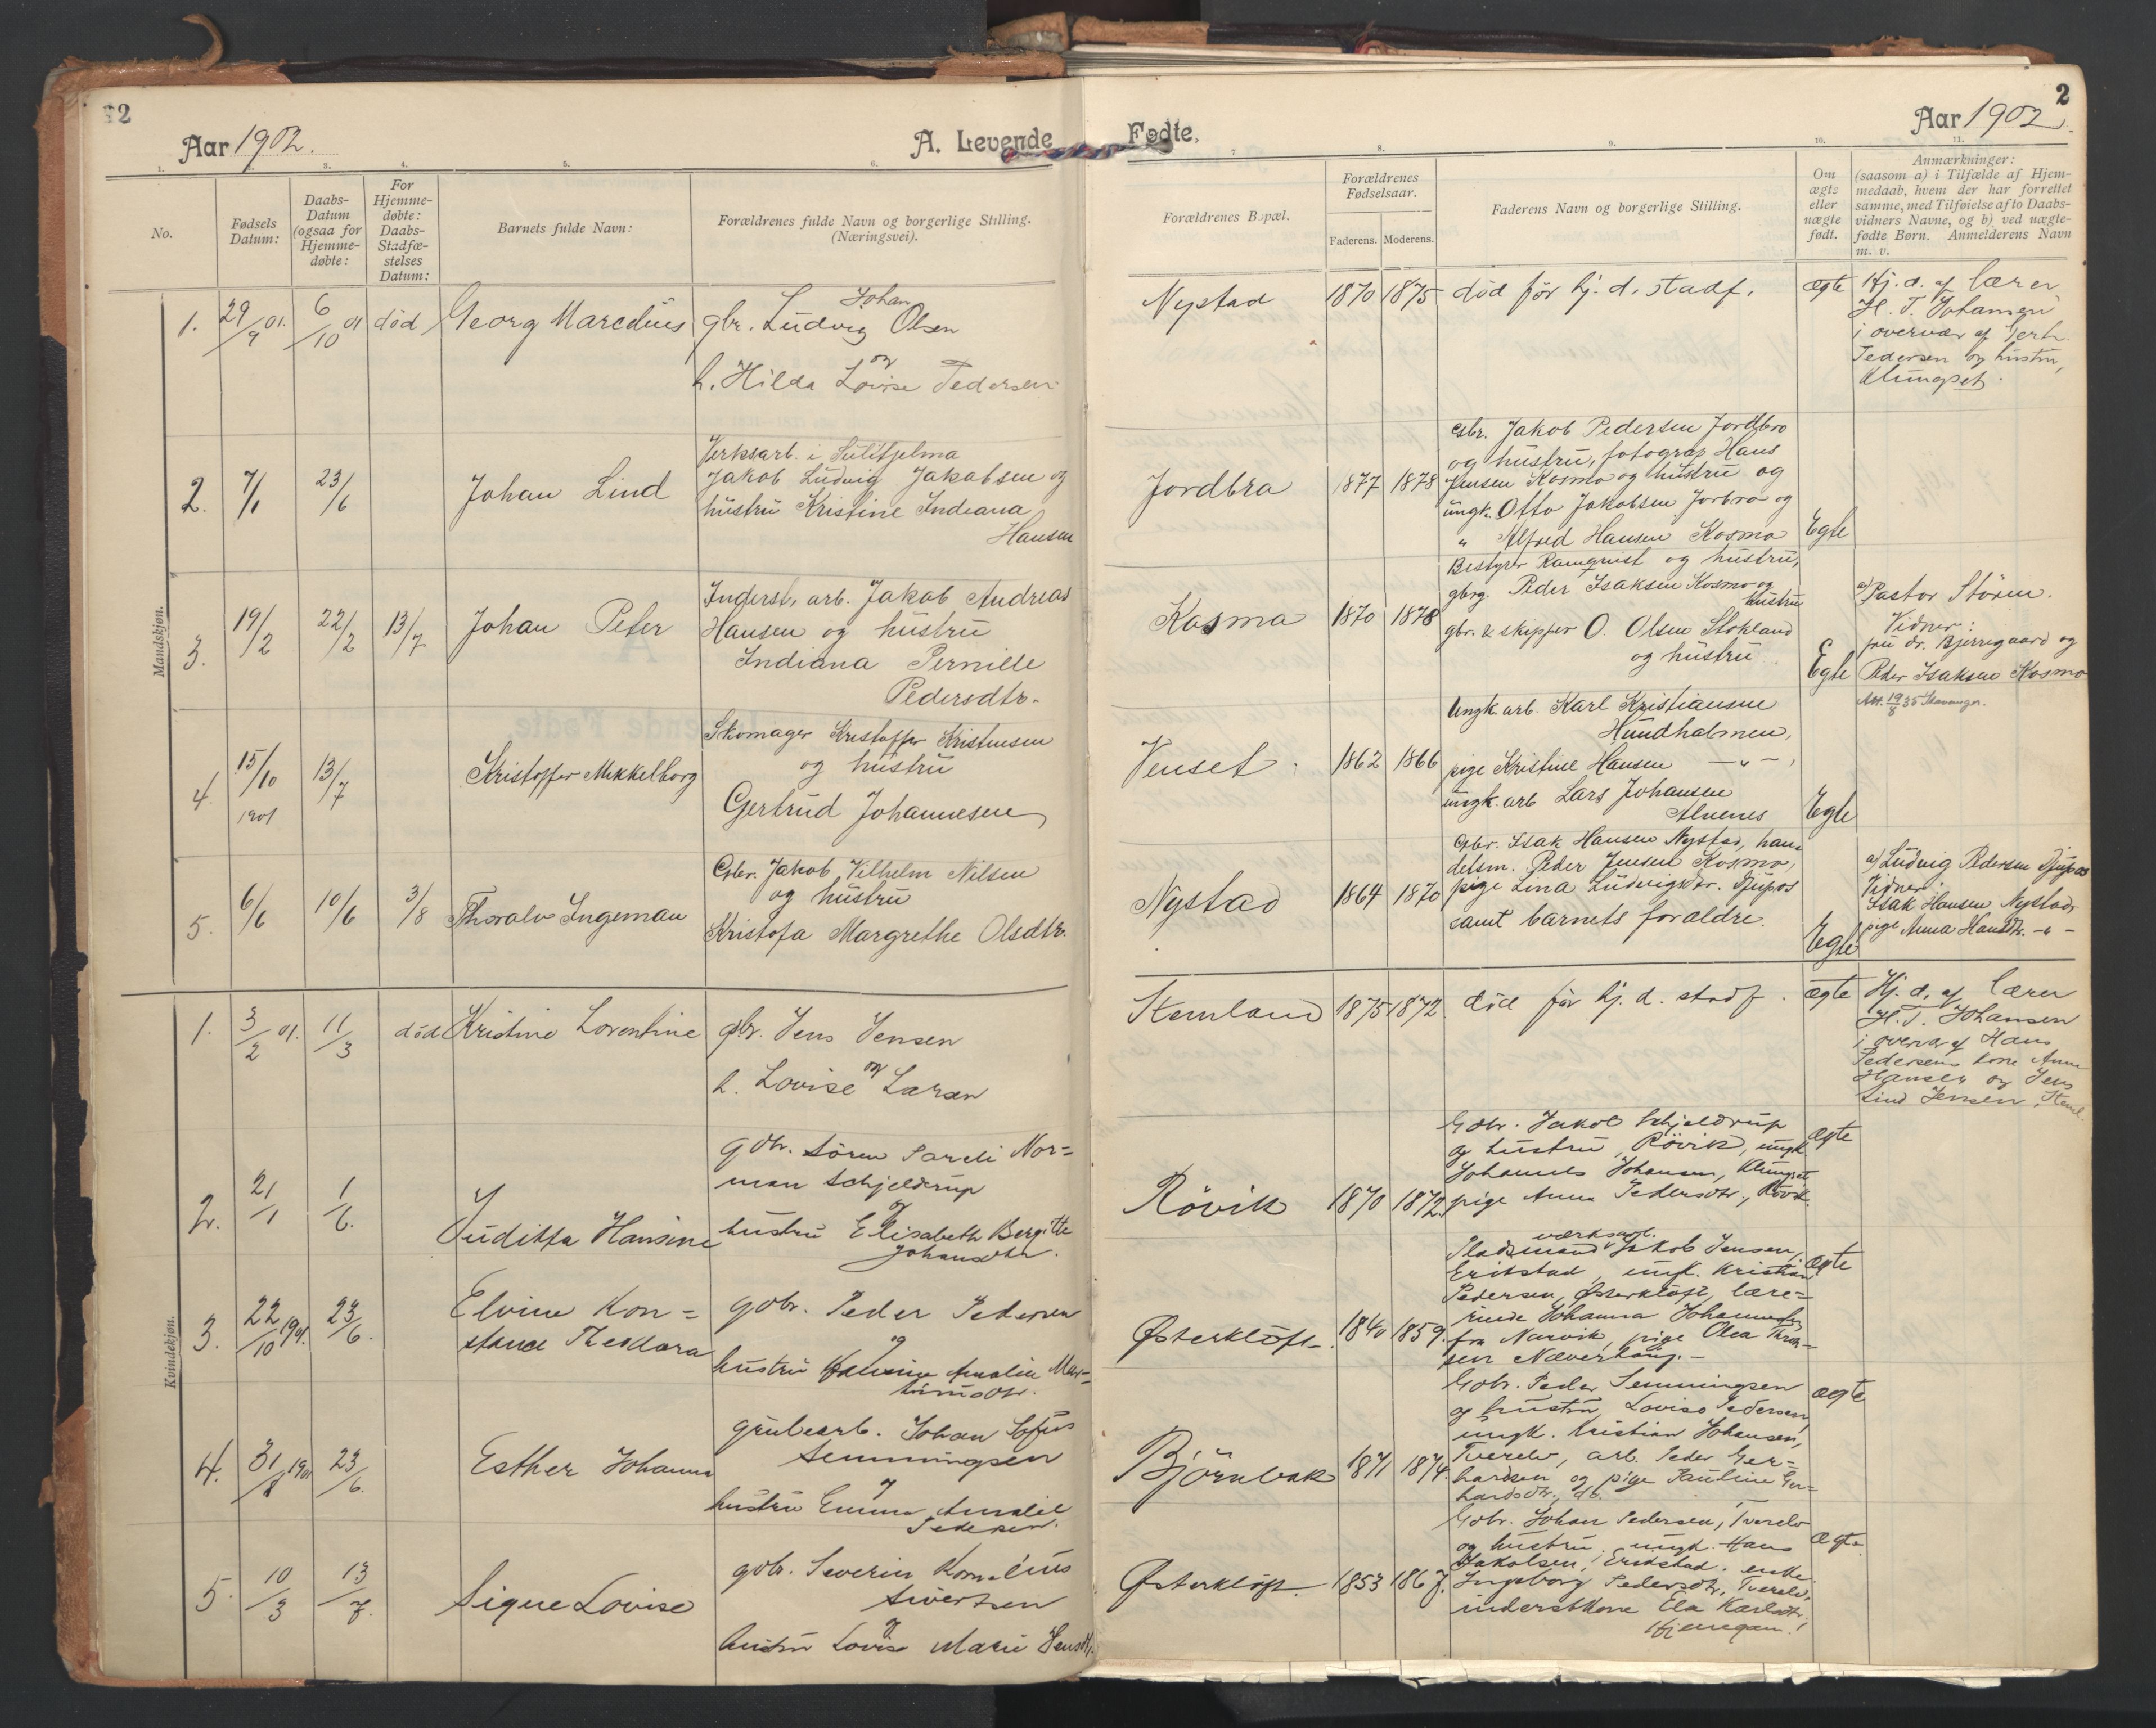 2
Aar 1902.
A. Levende
1.
3.
4.
5.
6.
No.
Fødsels Datum:
Daabs-Datum (ogsaa for Hjemme-døbte:
For Hjemme-døbte: Daabs-Stadfæ-stelses Datum:
Barnets fulde Navn:
Forældrenes fulde Navn og borgerlige Stilling. (Næringsvei).
Mandskjøn.
1. 29/9 01. 6/10 01 død Georg Marcelius gbr. Ludvig Johan Olsen
og
h. Hilda Lovise Pedersen
2. 7/1 23/6 Johan Lind
Verksarb. i Sulitjelma
Jakob Ludvig Jakobsen og
hustru Kristine Indiana
Hansen
3. 19/2 22/2 13/7 Johan Peter
Inderst, arb. Jakob Andreas
Hansen og hustru
Indiana Pernille
Pedersdtr.
4. 15/10 1901 13/7 Kristoffer Mikkelborg
Skomager Kristoffer Kristensen
og hustru
Gertrud Johannesen
5. 6/6 10/6 3/8 Thoralv Ingeman
Gbr. Jakob Vilhelm Nilsen
og hustru
Kristofa Margrethe Olsdtr.
Kvindekjøn.
1. 3/2 01. 11/3 død Kristine Lorentine gbr. Jens Jensen
og
h. Lovise Larsen
2. 21/1 1/6. Juditha Hansine
gbr. Sören Nor=
man Schjeldrup
og
hustru Elisabeth Bergitte
Johansdtr.
3. 22/10 1901. 23/6. Elvine Kon=
stance Theodora
gbr. Peder Pedersen
og
hustru Amalie Mar=
4. 31/8 1901 23/6. Esther Johanna
grubearb. Johan Sofus
Semmingsen
og
hustru Emma Amalie
Pedersen.
5. 10/3 13/7. Signe Lovise
gbr. Severin Kornelius
Sivertsen
og
hustru Lovise Marie
Fødte.
Aar 1902.
2
7
8.
9.
10.
11.
Forældrenes Bopæl.
Forældrenes Fødselsaar.
Faderens. Moderens.
Faderens Navn og borgerlige Stilling.
Om ægte eller uægte født.
Anmærkninger:
(saasom a) i Tilfælde af Hjem-
medaab, hvem der har forrettet
samme, med Tilføielse af to Daabs-
vidners Navne, og b) ved uægte-
fødte Børn. Anmelderens Navn
m. v.
Nystad 1870 1875 død før hj. d. stadf. ægte
Hj. d. af lærer
H. T. Johansen
i overvær af Gerh.
Pedersen og hustru,
Klungset.
Jordbra 1877 1878
Gbr. Jakob Pedersen Jordbro
og hustru, fotograf Hans
Jensen Kosmo og hustru og
ungk. Otto Jakobsen Jorbro og
" Alfred Hansen Kosmo Egte
Kosma 1870 1878
Bestyrer Ramqvist og hustru,
gbrg. Peder Isaksen Kosmo og
hustru
gbr. & skipper O. Olsen Stokland
og hustru. Egte
a) Pastor Stören.
Vidner:
fru dr. Bjerregaard og
Peder Isaksen Kosmo
Att. 19/8 35 Stavanger.
Venset 1862 1866
Ungk. arb. Karl Kristiansen
Hundholmen,
pige Kristine Hansen — " —,
ungk. arb Lars Johansen
Alvenes Egte
Nystad 1864 1870
Gbr. Isak Hansen Nystad, han
delsm. Peder Jensen Kosmo,
pige Lina Ludvigsdtr. Djupos
samt barnets forældre. Egte
a) Ludvig Pedersen Djupos
Vidner:
Isak Hansen Nystad,
pige Anna Hansdtr. - " -
Kemland 1875 1872. død før hj. d. stadf. ægte
Hj. d. af lærer
H. T. Johansen
i overvær af Hans
Pedersens kone Anne
Hansen og Jens
Lind Jensen,
Rövik 1870 1872.
Gbr. Jakob Schjeldrup
og hustru, Rövik, ungk
Johannes Johansen, Klungset
pige Anna Pedersdtr., Rövik. Ægte
Østerkløft. 1840 1859.
værksarb.
Pladsmand Jakob Jensen,
Erikstad, ungk. Kristian
Pedersen, Østerkløft, lære=
rinde Johanna
fra Narvik, pige Olea
sen Næverhaug.— ægte
Björnbak 1871 1874.
Gbr. Peder Semmingsen
og hustru Lovise Pedersen,
ungk. Kristian Johansen,
Tverelv, arb. Peder Ger=
hardsen og pige Pauline Ger=
hardsdtr., ægte
Østerkløft. 1853 1867.
Gbr. Johan Pedersen, Tverelv
og hustru, ungk. Hans
Jakobsen, Erikstad, enke
Ingeborg Pedersdtr. Tverelv,
inderstkone Ela Karlsdtr. Ægte